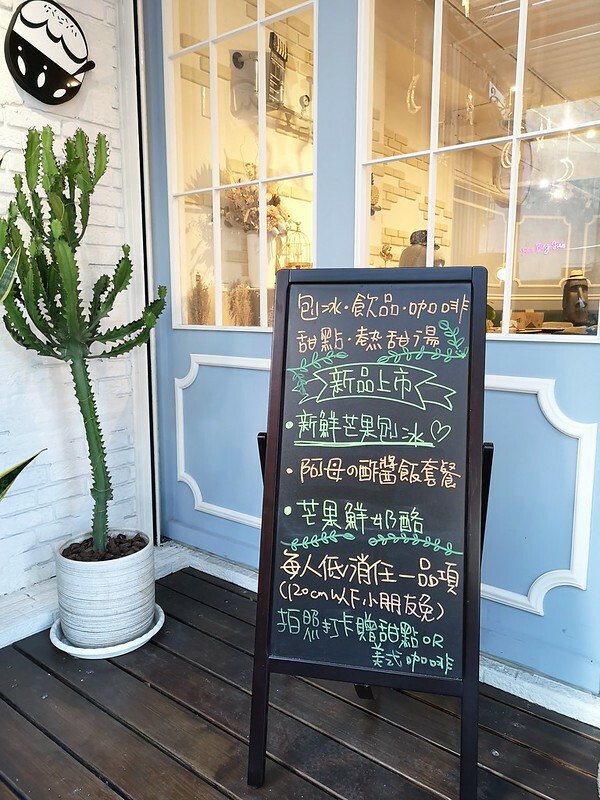 刨冰·飲品·咖啡
甜點·熱甜湯
新品上市
·新鮮芒果刨冰♡
·阿母の酢醬飯套餐
·芒果鮮奶酪
每人低消任一品項
(120cm以下小朋友免)
拍照打卡贈甜點 OR
美式咖啡